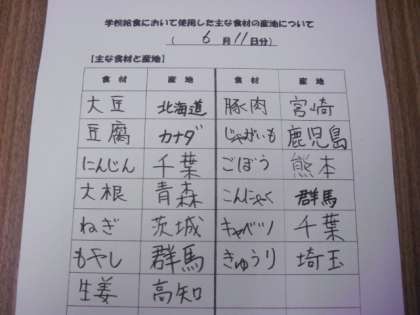 学校給食において使用した主な食材の産地について
( 6月11日分)
【主な食材と産地】
食材 産地 食材 産地
大豆 北海道 豚肉 宮崎
豆腐 カナダ じゃがいも 鹿児島
にんじん 千葉 ごぼう 熊本
大根 青森 こんにゃく 群馬
ねぎ 茨城 キャベツ 千葉
もやし 群馬 きゅうり 埼玉
生姜 高知